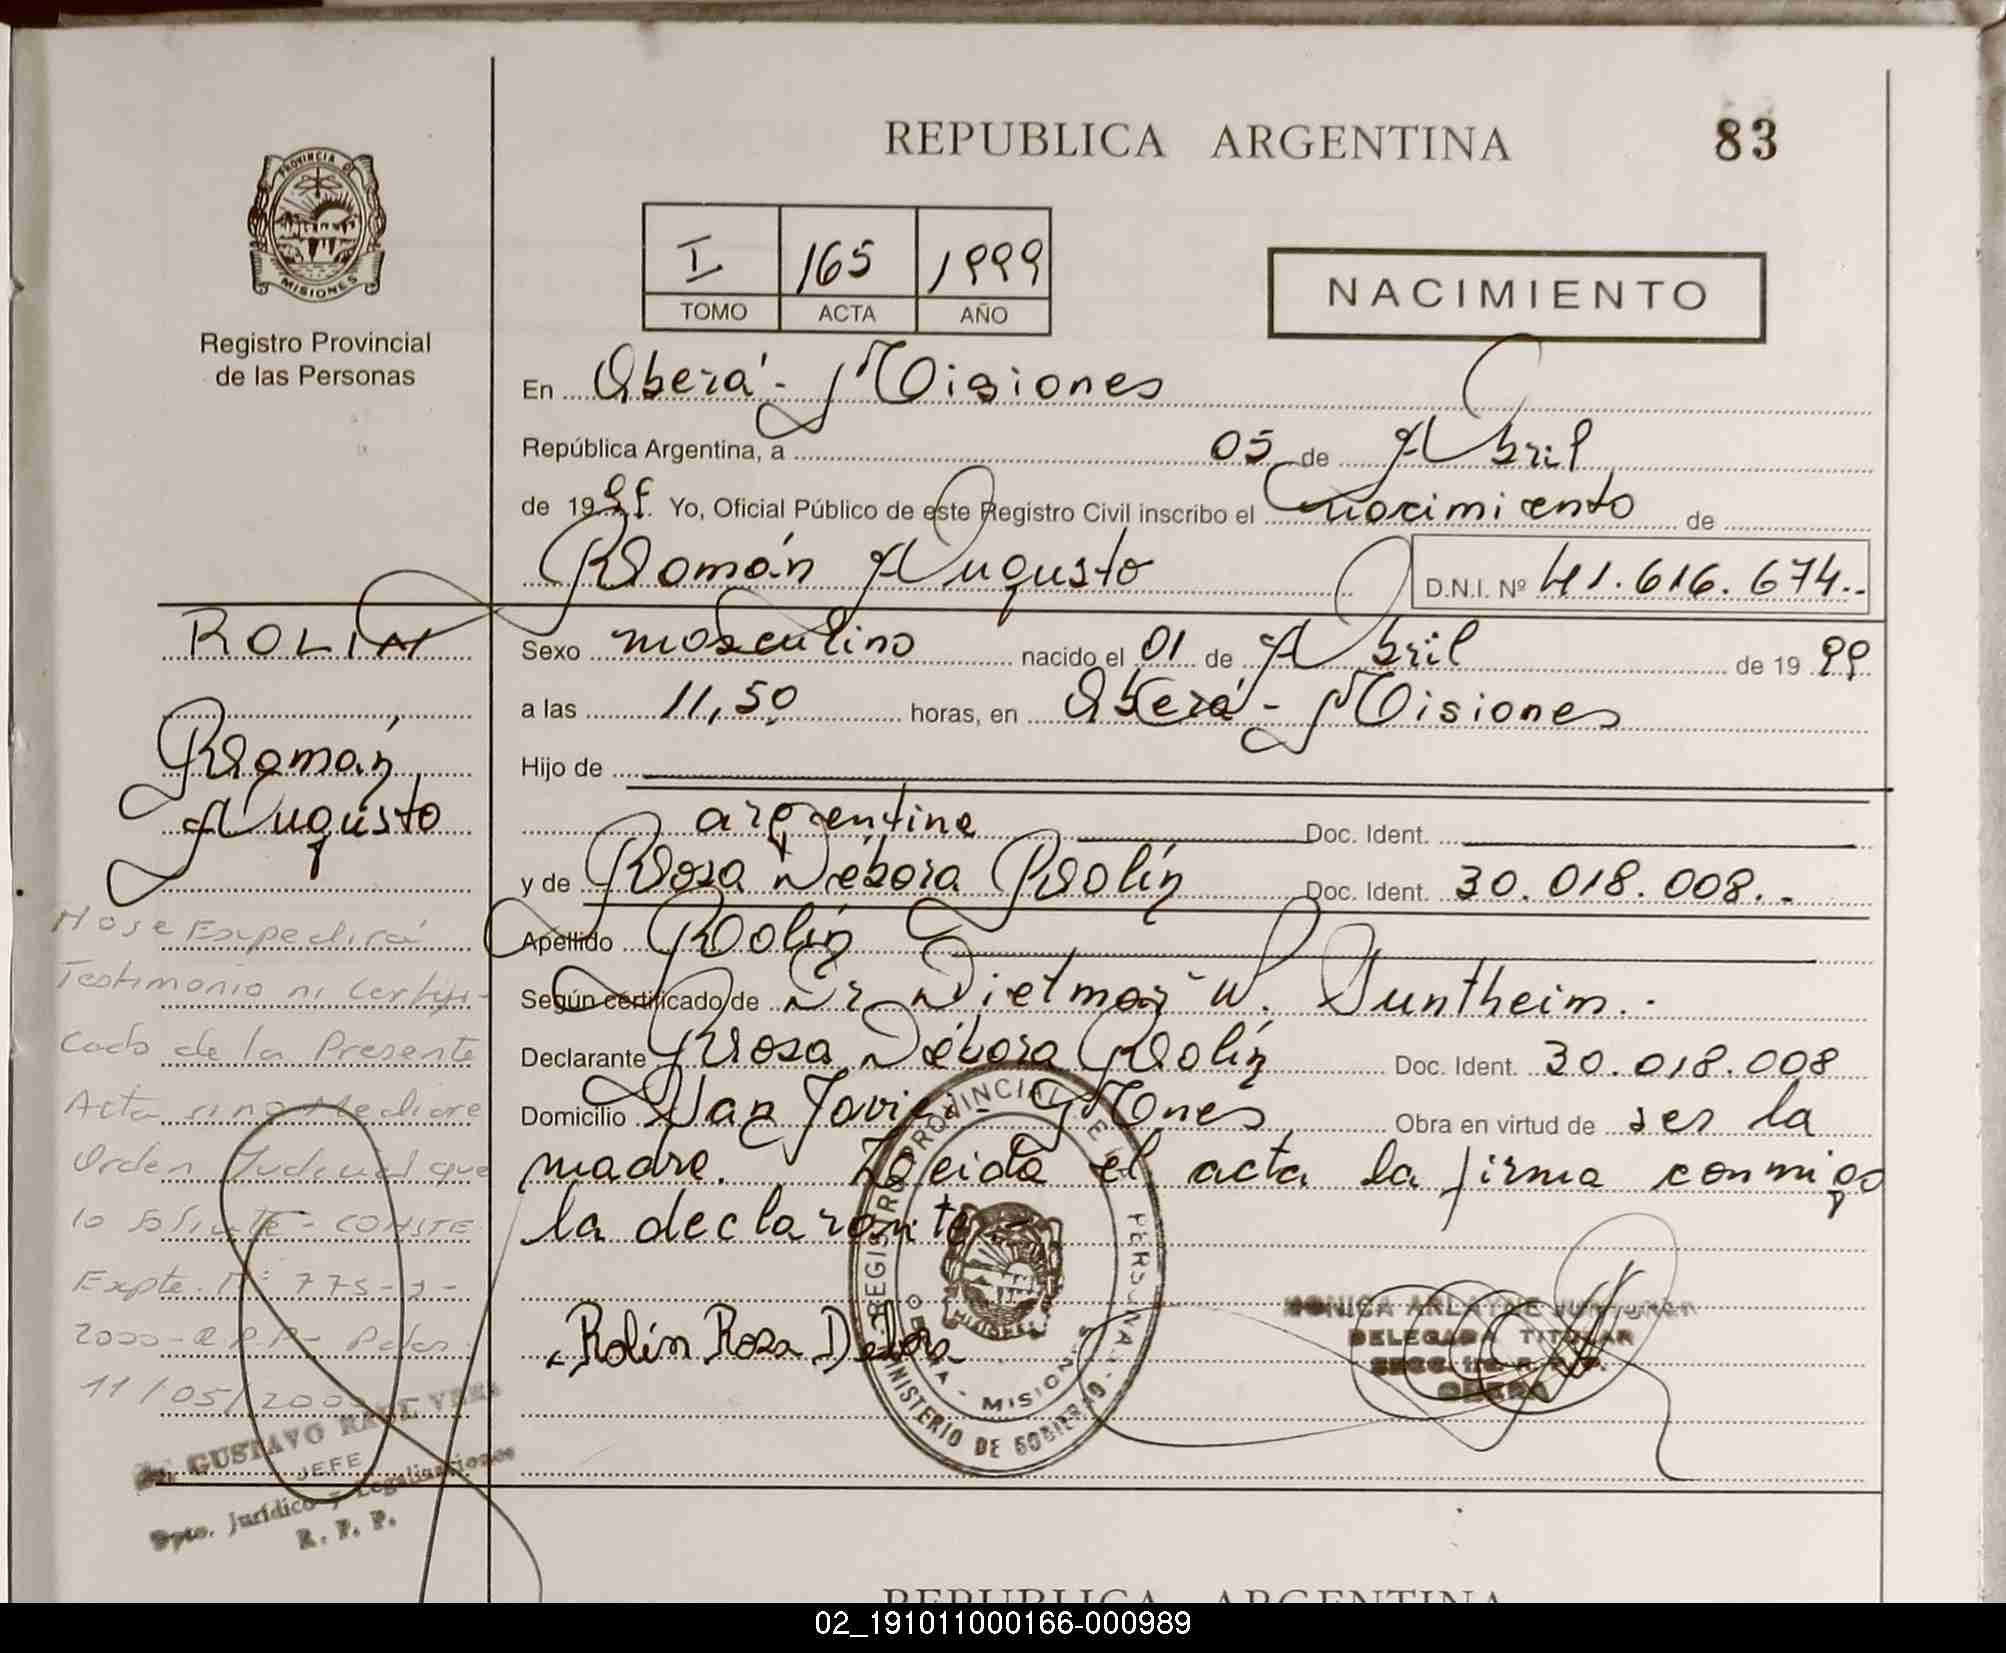 REPUBLICA ARGENTINA
83
PROVINCIA DE
MISIONES
Registro Provincial
de las Personas
I 165 1999
TOMO ACTA AÑO
NACIMIENTO
En Oberá - Misiones
República Argentina, a 05 de Abril
de 1999. Yo, Oficial Público de este Registro Civil inscribo el nacimiento de
Román Augusto D.N.I. Nº 41.616.674.-
ROLIN
Román
Augusto
Sexo masculino nacido el 01 de Abril de 1999
a las 11,50 horas, en Oberá - Misiones
Hijo de
argentina Doc. Ident.
y de Rosa Débora Rolín Doc. Ident. 30.018.008.-
Apellido Rolín
Según certificado de Dr Dietmar W. Suntheim.-
Declarante Rosa Débora Rolín Doc. Ident. 30.018.008
Domicilio San Javier - Mnes Obra en virtud de ser la
madre. Leida el acta la firma conmigo
la declarante.-
Rolín Rosa Débora
No se Expedirá
Testimonio ni Certifi-
cado de la Presente
Acta sino Mediare
Orden Judicial que
lo Solicite - CONSTE
Expte. Nº 775-
2000-R.P.P- Pdas.
11/05/200
GUSTAVO RAUL VERA
JEFE
Dpto. Jurídico y Legalizaciones
R. P. P.
REGISTRO PROVINCIAL DE PERSONAS
OBERA - MISIONES
MINISTERIO DE GOBIERNO
MONICA ARLAYNE
DELEGADA TITULAR
SECC. 1ra. R.P.P.
OBERA
REPUBLICA ARGENTINA
02_191011000166-000989